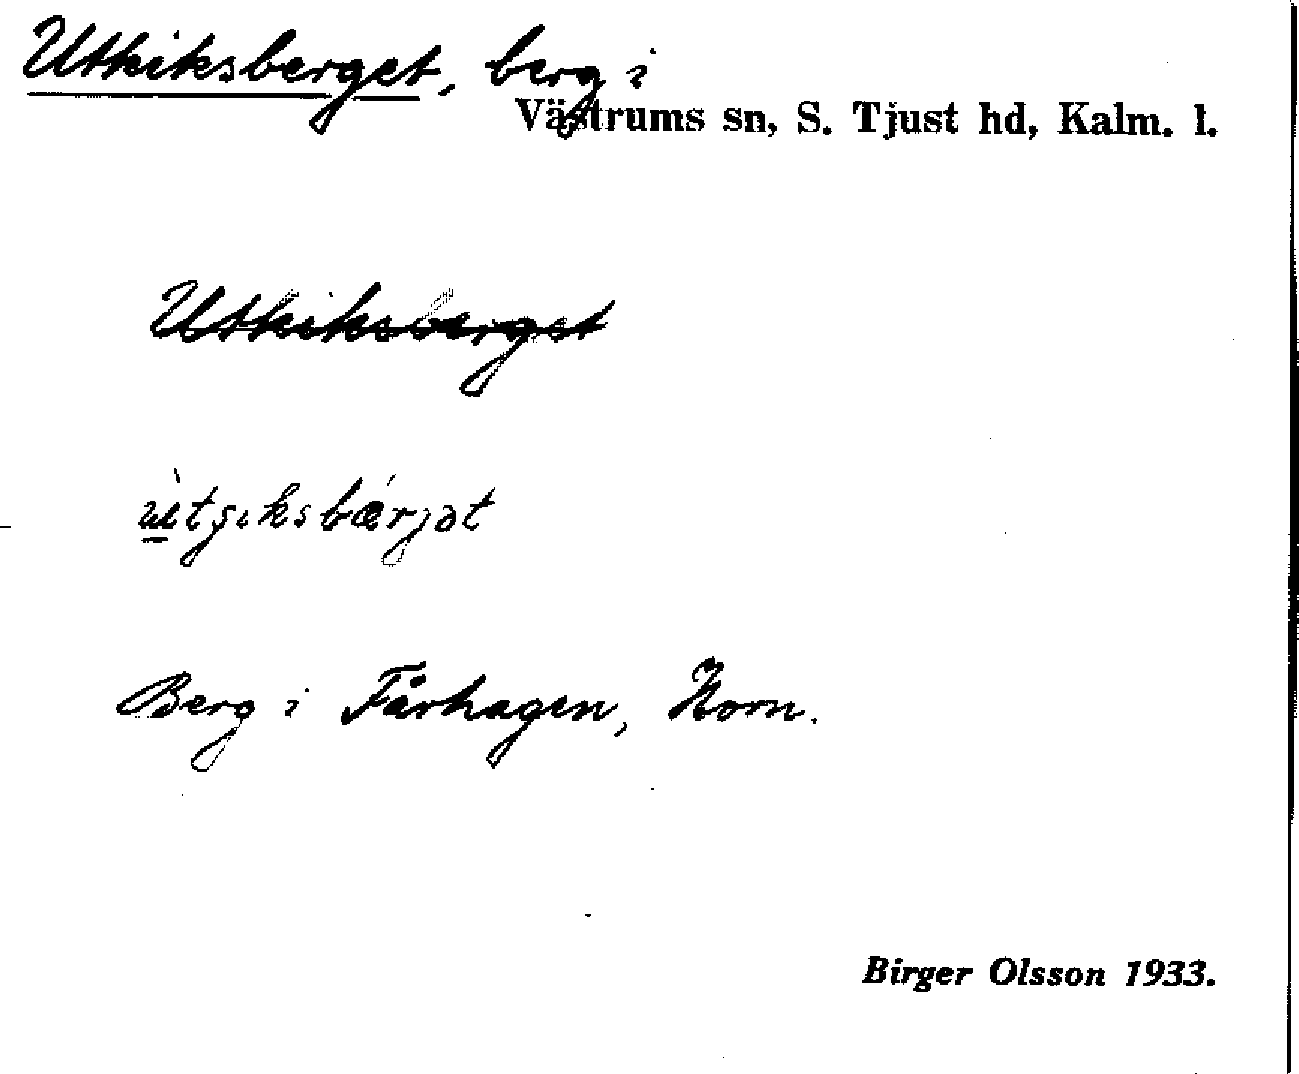 Utkiksberget, berg i
Västrums sn, S. Tjust hd, Kalm. l.
Utkiksberget
Berg i Fårhagen, Horn.
Birger Olsson 1933.